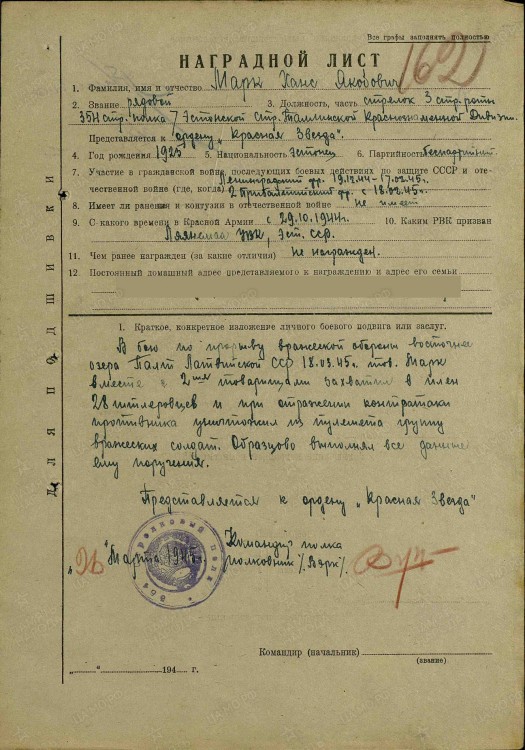 Все графы заполнять полностью
162
НАГРАДНОЙ ЛИСТ
1. Фамилия, имя и отчество Марк Ханс Якобович
2. Звание рядовой 3. Должность, часть стрелок 3 стр. роты
354 стр. полка 7 Эстонской Стр. Таллинской Краснознаменной Дивизии.
Представляется к ордену „Красная Звезда".
4. Год рождения 1925 5. Национальность эстонец 6. Партийность беспартийный.
7. Участие в гражданской войне, последующих боевых действиях по защите СССР и оте-
чественной войне (где, когда) Ленинградский фр. 19.12.44 - 17.02.45г.
2 Прибалтийский фр. с 18.02.45г.
8. Имеет ли ранения и контузии в отечественной войне не имеет
9. С какого времени в Красной Армии с 29.10.1944г. 10. Каким РВК призван
Ляянемаа УВК, Эст. ССР.
11. Чем ранее награжден (за какие отличия) не награжден.
12. Постоянный домашний адрес представляемого к награждению и адрес его семьи
ДЛЯ ПОДШИВКИ
I. Краткое, конкретное изложение личного боевого подвига или заслуг.
В бою по прорыву вражеской обороны восточнее
озера Латвийской ССР 18.03.45г. тов. Марк
вместе с 2мя товарищами захватил в плен
28 гитлеровцев и при отражении контратаки
противника уничтожил из пулемета группу
вражеских солдат. Образцово выполнял все данные
ему поручения.
Представляется к ордену „Красная Звезда"
Командир полка
„26" Марта 1945г. полковник /Вярк/.
Командир (начальник)
(звание)
„ " 194 г.